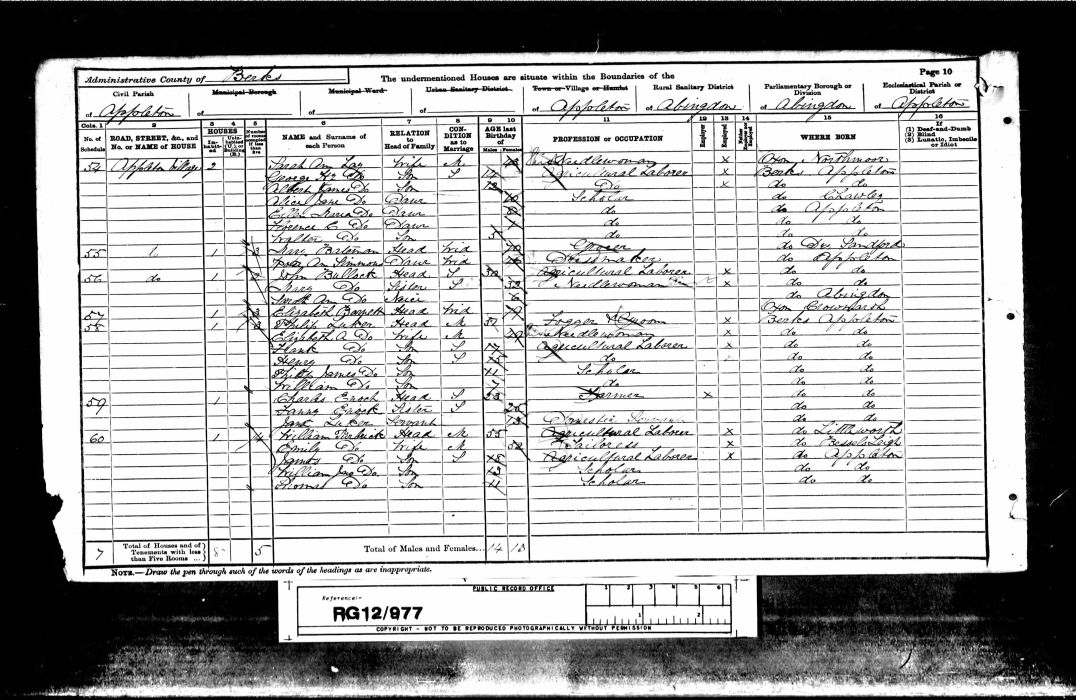 Administrative County of Berks The undermentioned Houses are situate within the Boundaries of the Page 10
Civil Parish Municipal Borough Municipal Ward Urban Sanitary District Town or Village or Hamlet Rural Sanitary District Parliamentary Borough or Division Ecclesiastical Parish or District
of Appleton of of of of Appleton of Abingdon of Abingdon of Appleton
Cols. 1 2 3 4 5 6 7 8 9 10 11 12 13 14 15 16
No. of Schedule ROAD, STREET, &c., and No. or NAME of HOUSE HOUSES Inhabited Uninhabited (U.), or Building (B.) Number of rooms occupied if less than five NAME and Surname of each Person RELATION to Head of Family CONDITION as to Marriage AGE last Birthday of Males Females PROFESSION or OCCUPATION Employer Employed Neither Employer nor Employed WHERE BORN If (1) Deaf-and-Dumb (2) Blind (3) Lunatic, Imbecile or Idiot
54 Appleton Village 2 Sarah Ann Wife M Needlewoman x Oxon Northmoor
George Do Son S 14 Agricultural Laborer x Berks Appleton
Albert James Do Son 13 Do x do do
Alice Jane Do Daur 10 Scholar do Chawley
Ellen Maria Do Daur do do Appleton
Florence E Do Daur do do do
Walter Do Son 5 do do do
55 1 3 Mary Bateman Head Wid Grocer do Dry Sandford
Ann Simmons Daur Wid Dressmaker do Appleton
56 do 1 John Bullock Head S 30 Agricultural Laborer x do do
Mary Do Sister S 32 Needlewoman x do do
Ann Do Niece 6 do Abingdon
57 1 3 Elizabeth Barrett Head Wid Oxon Crowmarsh
58 1 3 Philip Luker Head M x Berks Appleton
Elizabeth A Do Wife M Needlewoman x do do
Frank Do Son S 17 Agricultural Laborer x do do
Henry Do Son S 15 do do do
James Do Son 11 Scholar do do
William Do Son 7 do do do
59 1 Charles Enoch Head S Farmer x do do
Fanny Enoch Sister S do do
Jane Luker Servant 13 Domestic Servant do do
60 1 4 William Head M 55 Agricultural Laborer x do Littleworth
Emily Do Wife M 52 Tailoress x do Bessels Leigh
James Do Son S 18 Agricultural Laborer x do Appleton
William Do Son 13 Scholar do do
Thomas Do Son 11 Scholar do do
7 Total of Houses and of Tenements with less than Five Rooms ... 8 5 Total of Males and Females... 14 13
NOTE.—Draw the pen through such of the words of the headings as are inappropriate.
PUBLIC RECORD OFFICE 1 2 3 4 5 6
Reference:-
RG12/977 1 2
COPYRIGHT - NOT TO BE REPRODUCED PHOTOGRAPHICALLY WITHOUT PERMISSION